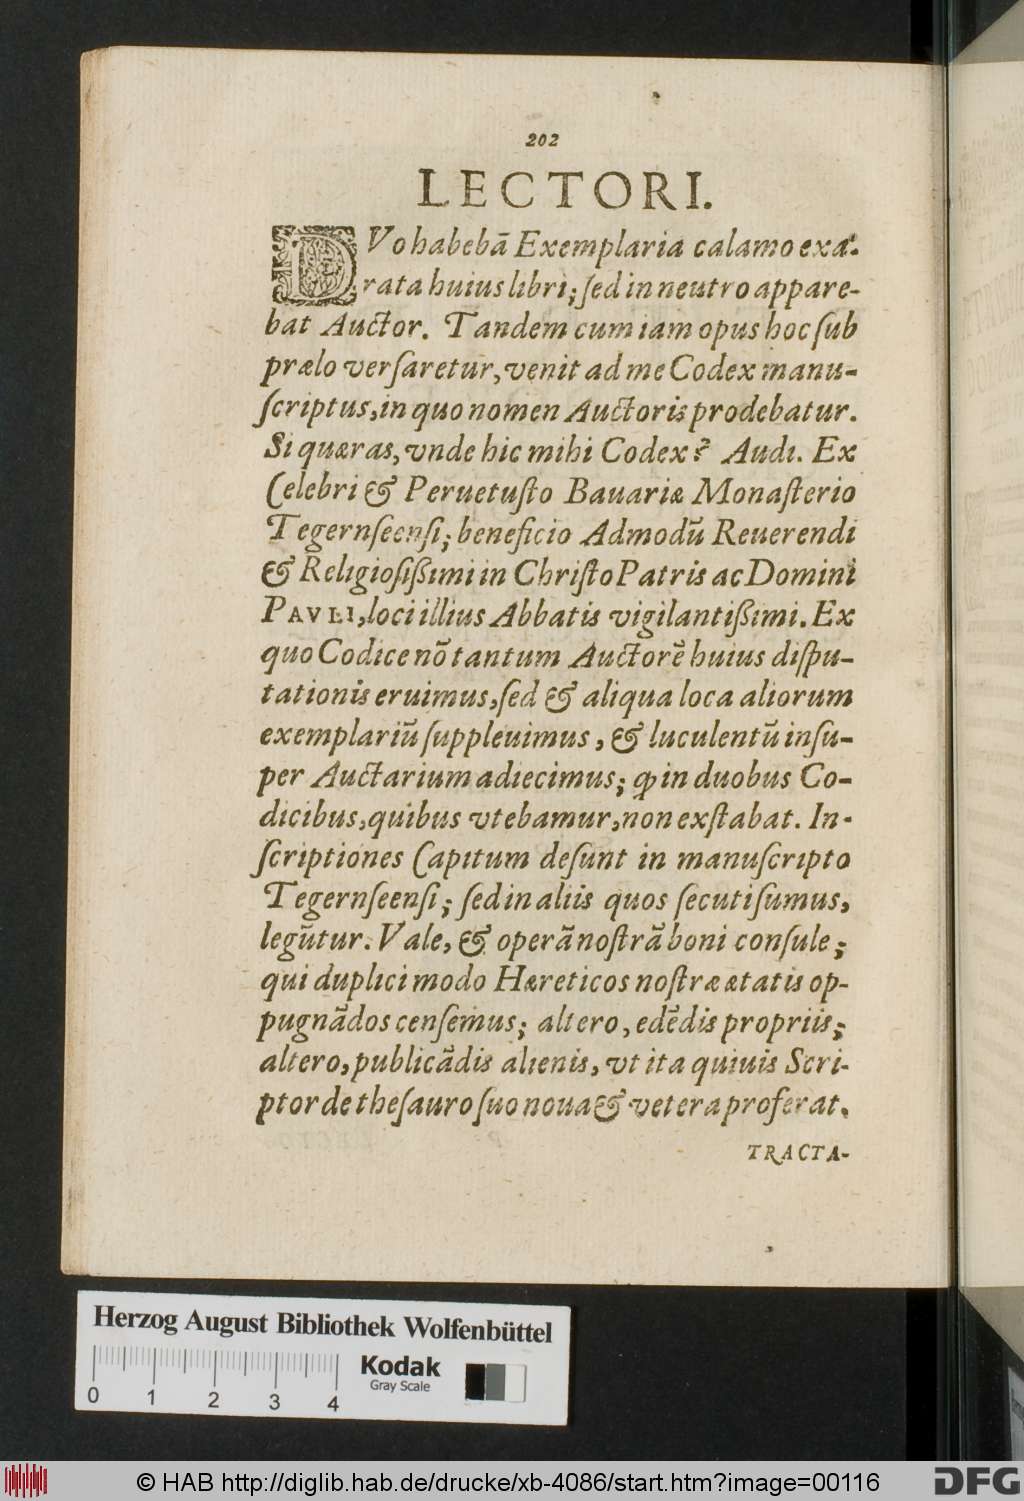 202
LECTORI.
DVo habebā Exemplaria calamo exa-
rata huius libri; ſed in neutro appare-
bat Auctor. Tandem cum iam opus hoc ſub
prælo verſaretur, venit ad me Codex manu-
ſcriptus, in quo nomen Auctoris prodebatur.
Si quæras, vnde hic mihi Codex? Audi. Ex
Celebri & Peruetuſto Bauariæ Monaſterio
Tegernſeenſi; beneficio Admodū Reuerendi
& Religioſißimi in Chriſto Patris ac Domini
PAVLI, loci illius Abbatis vigilantißimi. Ex
quo Codice nō tantum Auctorē huius diſpu-
tationis eruimus, ſed & aliqua loca aliorum
exemplariū ſuppleuimus, & luculentū inſu-
per Auctarium adiecimus; ꝙ in duobus Co-
dicibus, quibus vtebamur, non exſtabat. In-
ſcriptiones Capitum deſunt in manuſcripto
Tegernſeenſi; ſed in aliis quos ſecuti ſumus,
legūtur. Vale, & operā noſtrā boni conſule;
qui duplici modo Hæreticos noſtræ ætatis op-
pugnādos cenſemus; altero, edēdis propriis;
altero, publicādis alienis, vt ita quiuis Scri-
ptor de theſauro ſuo noua & vetera proferat.
TRACTA-
Herzog August Bibliothek Wolfenbüttel
0 1 2 3 4
Kodak
Gray Scale
© HAB http://diglib.hab.de/drucke/xb-4086/start.htm?image=00116
DFG